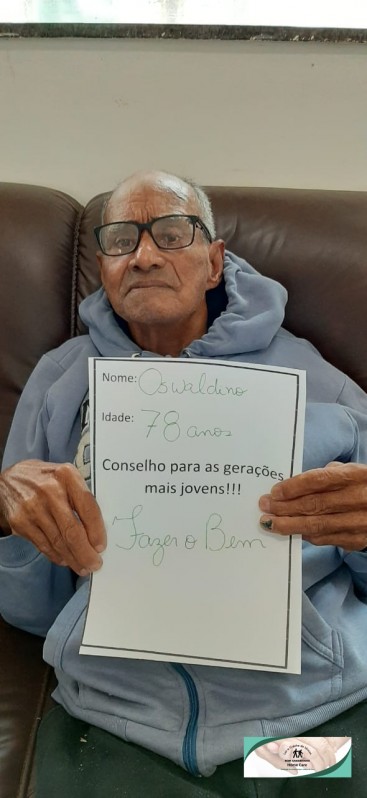 Nome: Oswaldino
Idade: 78 anos
Conselho para as gerações
mais jovens!!!
Fazer o Bem
Home Care